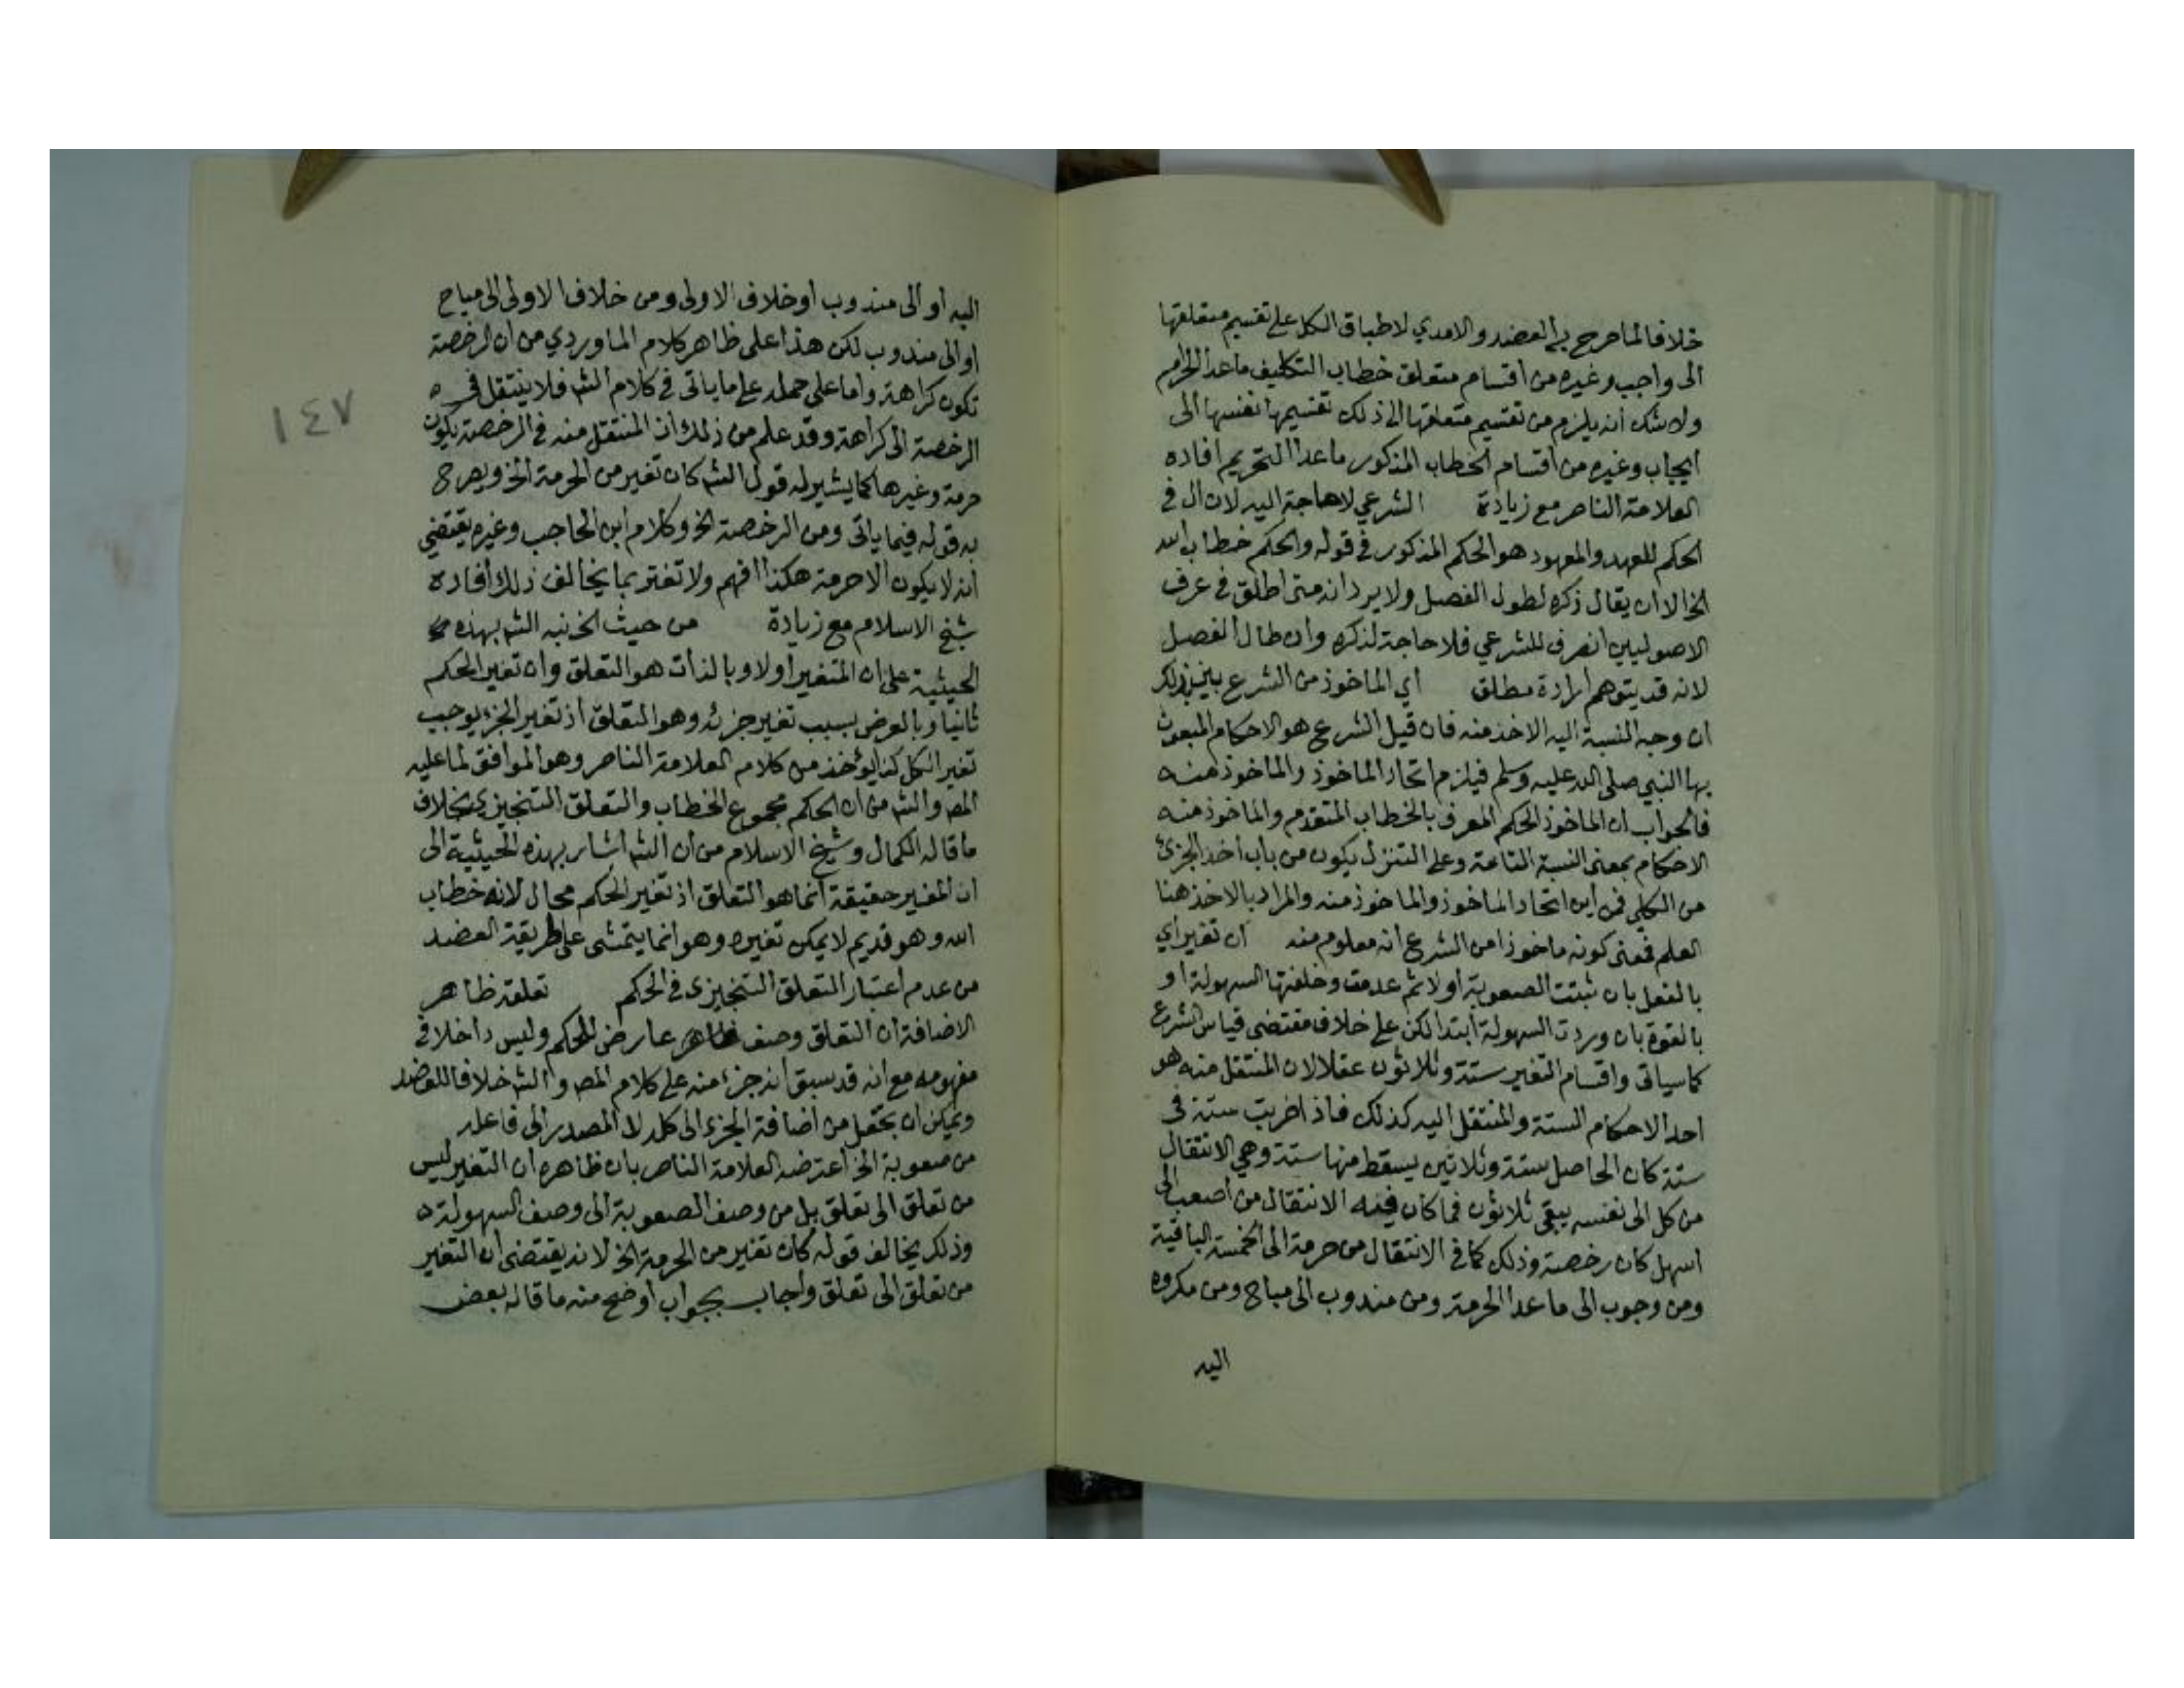 خلافا لما صرح به العضد والامدي لاطباق الكل على تقسيم متعلقها
الى واجب وغيره من اقسام متعلق خطاب التكليف ماعدا الحرام
ولا شك أنه يلزم من تقسيم متعلقها الى ذلك تقسيمها نفسها الى
ايجاب وغيره من اقسام الخطاب المذكور ماعدا التحريم افاده
العلامة الناصر مع زيادة الشرعي لاحاجة اليه لان ال في
الحكم للعهد والمعهود هو الحكم المذكور في قوله والحكم خطاب الله
الخ الا ان يقال ذكره لطول الفصل ولا يرد انه متى اطلق في عرف
الاصوليين انصرف للشرعي فلا حاجة لذكره وان طال الفصل
لانه قد يتوهم ارادة مطلق أي الماخوذ من الشرع بذلك
ان وجه النسبة اليه الاخذ منه فان قيل الشرع هو الاحكام المبعوث
بها النبي صلى الله عليه وسلم فيلزم اتحاد الماخوذ والماخوذ منه
فالجواب ان الماخوذ الحكم المعرف بالخطاب المتقدم والماخوذ منه
الاحكام بمعنى النسبة التامة وعلى التنزل يكون من باب أخذ الجزئ
من الكلي فمن أين اتحاد الماخوذ والماخوذ منه والمراد بالاخذ هنا
العلم فمعنى كونه ماخوذا من الشرع انه معلوم منه ان تغير اي
بالفعل بان ثبتت الصعوبة أولا ثم عدمت وخلفتها السهولة او
بالقوة بان وردت السهولة ابتدا لكن على خلاف مقتضى قياس الشرع
كما سياتى واقسام التغير ستة وثلاثون عقلا لان المنتقل منه هو
احد الاحكام الستة والمنتقل اليه كذلك فاذا ضربت ستة في
ستة كان الحاصل ستة وثلاثين يسقط منها ستة وهي الانتقال
من كل الى نفسه يبقى ثلاثون فما كان فيه الانتقال من اصعب الى
اسهل كان رخصة وذلك كما في الانتقال من حرمة الى الخمسة الباقية
ومن وجوب الى ما عدا الحرمة ومن مندوب الى مباح ومن مكروه
اليه
اليه أو الى مندوب او خلاف الاولى ومن خلاف الاولى الى مباح
او الى مندوب لكن هذا على ظاهر كلام الماوردي من ان الرخصة
تكون كراهة واما على حمله على ما ياتى في كلام الش فلا ينتقل في
الرخصة الى كراهة وقد علم من ذلك ان المنتقل منه في الرخصة يكون
حرمة وغيرها كما يشير له قول الش كان تغير من الحرمة الخ ويصرح
به قوله فيما ياتى ومن الرخصة الخ وكلام ابن الحاجب وغيره يقتضي
أنه لا يكون الا حرمة هكذا افهم ولا تغتر بما يخالف ذلك أفاده
شيخ الاسلام مع زيادة من حيث الخ نبه الش بهذه
الحيثية على ان المتغير أولا وبالذات هو التعلق وان تغير الحكم
ثانيا وبالعرض بسبب تغير جزئه وهو التعلق اذ تغير الجزء يوجب
تغير الكل كذا يؤخذ من كلام العلامة الناصر وهو الموافق لما عليه
المص والش من ان الحكم مجموع الخطاب والتعلق التنجيزى بخلاف
ما قاله الكمال وشيخ الاسلام من أن الش اشار بهذه الحيثية الى
ان المغير حقيقة انما هو التعلق اذ تغير الحكم محال لانه خطاب
الله وهو قديم لا يمكن تغيره وهو انما يتمشى على طريقة العضد
من عدم اعتبار التعلق التنجيزى في الحكم تعلقه ظاهر
الاضافة ان التعلق وصف عارض للحكم وليس داخلا في
مفهومه مع انه قد سبق انه جزء منه على كلام المص والش خلافا للعضد
ويمكن ان يجعل من اضافة الجزء الى كله لا المصدر الى فاعله
من صعوبة الخ اعترضه العلامة الناصر بان ظاهره ان التغير ليس
من تعلق الى تعلق بل من وصف الصعوبة الى وصف السهولة
وذلك يخالف قوله كان تغير من الحرمة الخ لانه يقتضى ان التغير
من تعلق الى تعلق واجاب بجواب أوضح منه ما قاله بعض
١٤٧